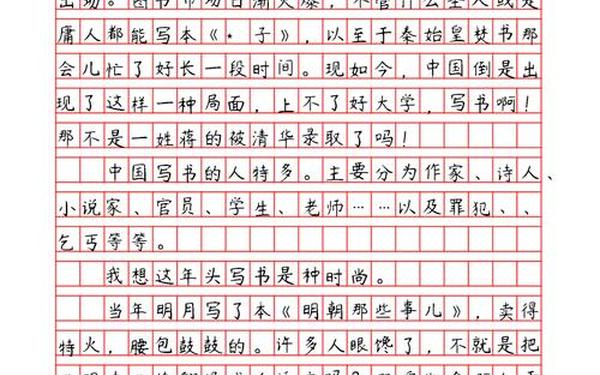 出动。图书市场日渐火爆，不管什么圣人或是
庸人都能写本《*子》，以至于秦始皇焚书那
会儿忙了好长一段时间。现如今，中国倒是出
现了这样一种局面，上不了好大学，写书啊！
那不是一姓蒋的被清华录取了吗！
中国写书的人特多。主要分为作家、诗人、
小说家、官员、学生、老师……以及罪犯、、
乞丐等等。
我想这年头写书是种时尚。
当年明月写了本《明朝那些事儿》，卖得
特火，腰包鼓鼓的。许多人眼馋了，不就是把